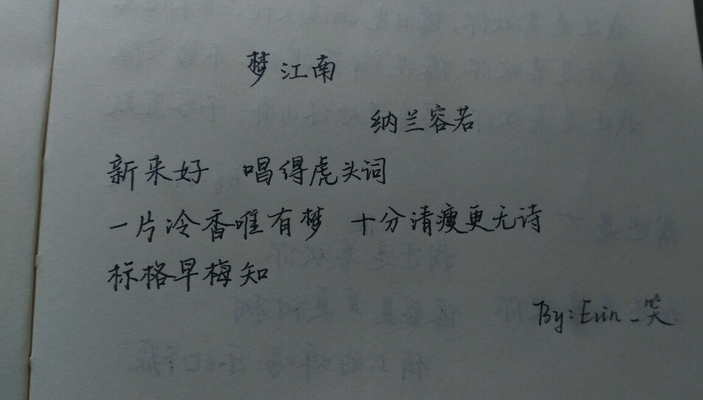 梦江南
纳兰容若
新来好 唱得虎头词
一片冷香唯有梦 十分清瘦更无诗
标格早梅知
By: Erin_笑